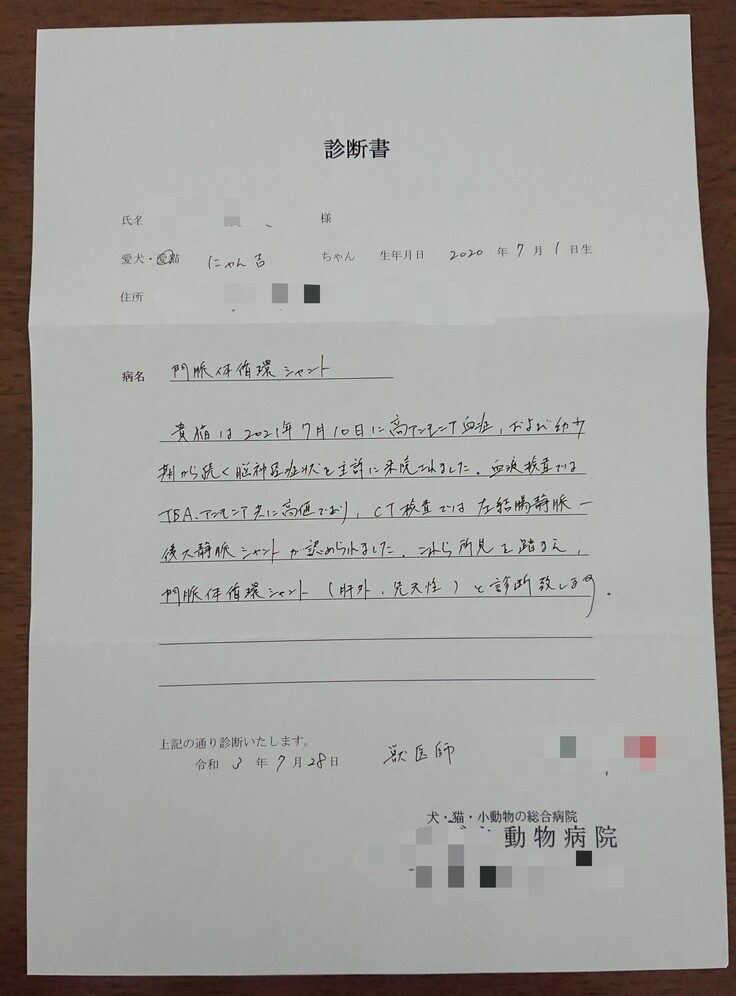 診断書
氏名 様
愛犬・愛猫 にゃん吉 ちゃん 生年月日 2020 年 7 月 1 日生
住所
病名 門脈体循環シャント
貴猫は2021年7月10日に高アンモニア血症，および幼少
期から続く脳神経症状を主訴に来院されました．血液検査では
TBA、アンモニア共に高値であり，CT検査では左結腸静脈ー
後大静脈シャントが認められました．これら所見を踏まえ，
門脈体循環シャント（肝外，先天性）と診断致します．
上記の通り診断いたします。
令和 3 年 7 月 28 日 獣医師
犬・猫・小動物の総合病院
動物病院